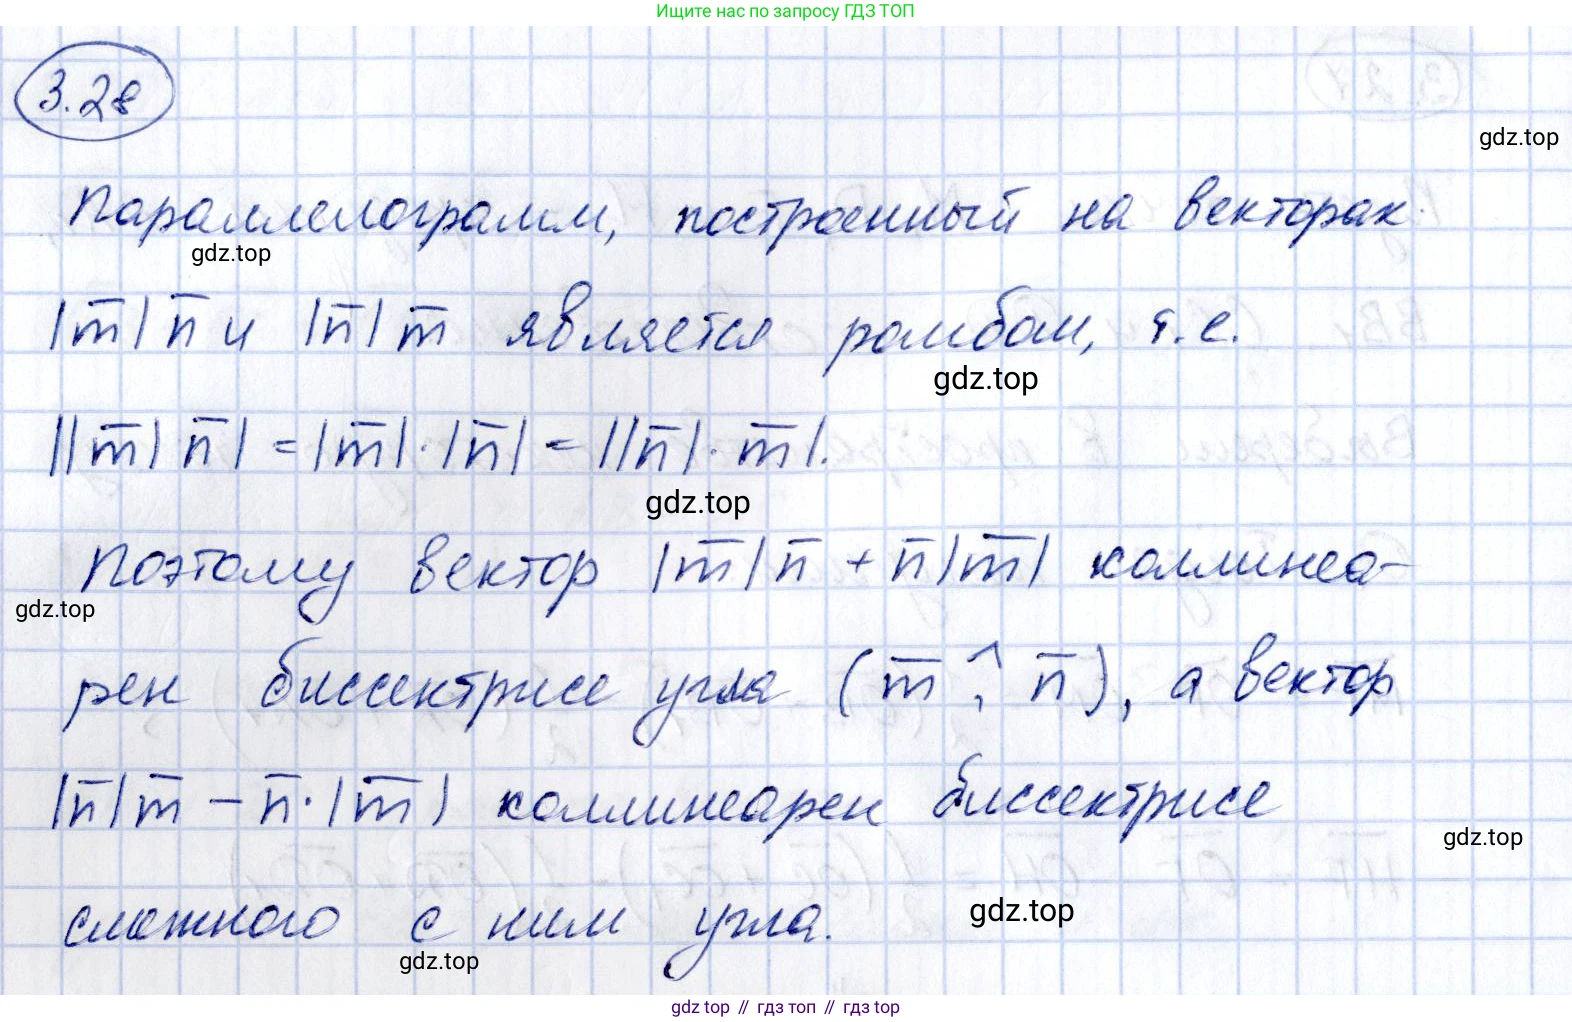 Ищите нас по запросу ГДЗ ТОП
3.28
gdz.top
Параллелограмм, построенный на векторах
gdz.top
|m̅| n̅ и |n̅| m̅ является ромбом, т.е.
gdz.top
||m̅| n̅| = |m̅|·|n̅| = ||n̅|·m̅|.
gdz.top
Поэтому вектор |m̅| n̅ + n̅|m̅| коллинеа-
gdz.top
рен биссектрисе угла (m̅ ^, n̅), а вектор
|n̅| m̅ – n̅·|m̅| коллинеарен биссектрисе
gdz.top
смежного с ним угла.
gdz.top
gdz.top
gdz top // гдз топ // gdz top